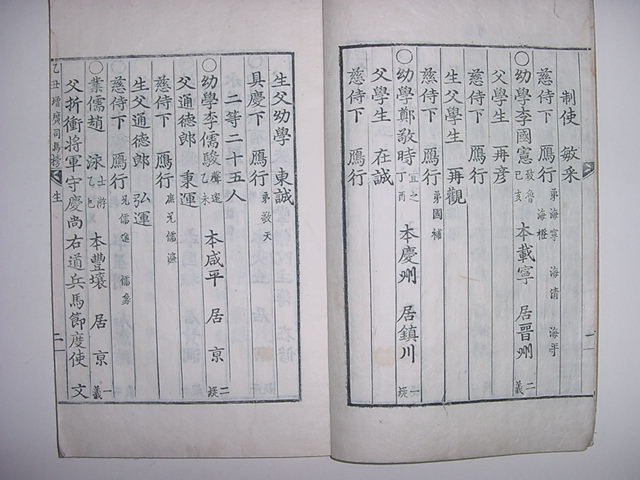 制使 敏采
慈侍下 鴈行 弟海寧 海清 海平 海橙
〇幼學李國憲 致魯 己亥 本載寧 居晋州 二 義
父學生 再彦
慈侍下 鴈行
生父學生 再觀
慈侍下 鴈行 弟國補
〇幼學鄭敬時 宜之 丁酉 本慶州 居鎮川 一
父學生 在誠
慈侍下 鴈行
生父幼學 東誠
具慶下 鴈行 弟敬天
二等二十五人
〇幼學李儒駿 乙未 本咸平 居京 二
父通德郎 秉運
慈侍下 鴈行 庶兄儒海
生父通德郎 弘運
慈侍下 鴈行 兄儒進 儒房
〇業儒趙 泳 士游 乙巳 本豐壤 居京 一 義
父折衝將軍守慶尚右道兵馬節度使 文
乙丑增廣司馬榜 生 二